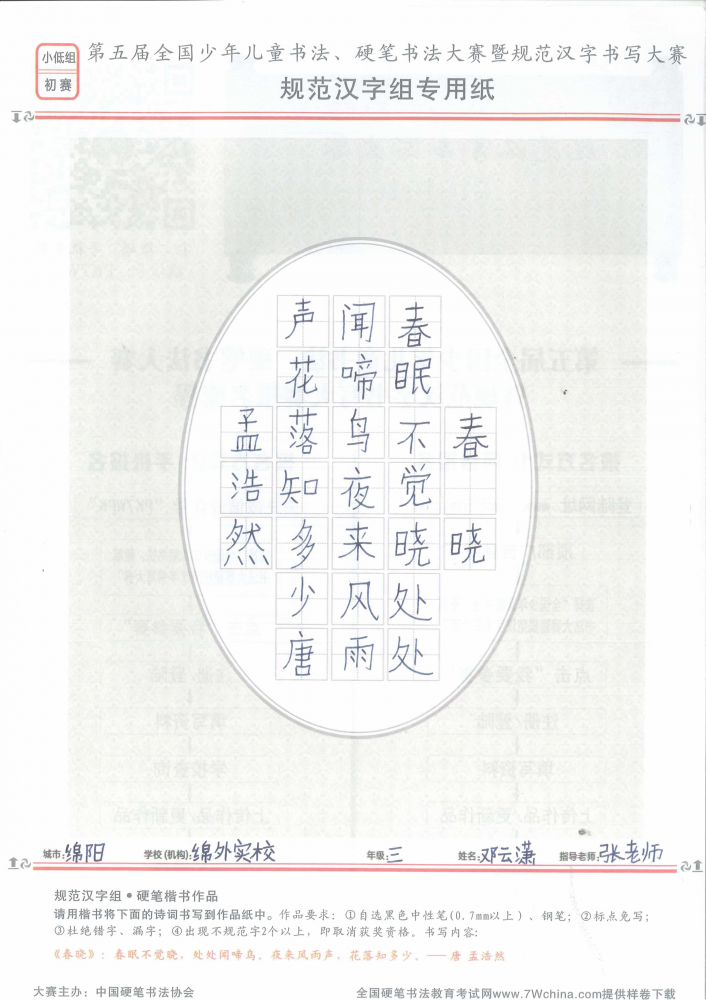 小低组
初赛
第五届全国少年儿童书法、硬笔书法大赛暨规范汉字书写大赛
规范汉字组专用纸
春晓
春眠不觉晓处处
闻啼鸟夜来风雨
声花落知多少唐
孟浩然
城市:绵阳 学校(机构):绵外实校 年级:三 姓名:邓云潇 指导老师:张老师
规范汉字组•硬笔楷书作品
请用楷书将下面的诗词书写到作品纸中。作品要求:①自选黑色中性笔(0.7mm以上)、钢笔;②标点免写;
③杜绝错字、漏字;④出现不规范字2个以上,即取消获奖资格。书写内容:
《春晓》:春眠不觉晓,处处闻啼鸟。夜来风雨声,花落知多少。——唐 孟浩然
大赛主办:中国硬笔书法协会 全国硬笔书法教育考试网www.7Wchina.com提供样卷下载